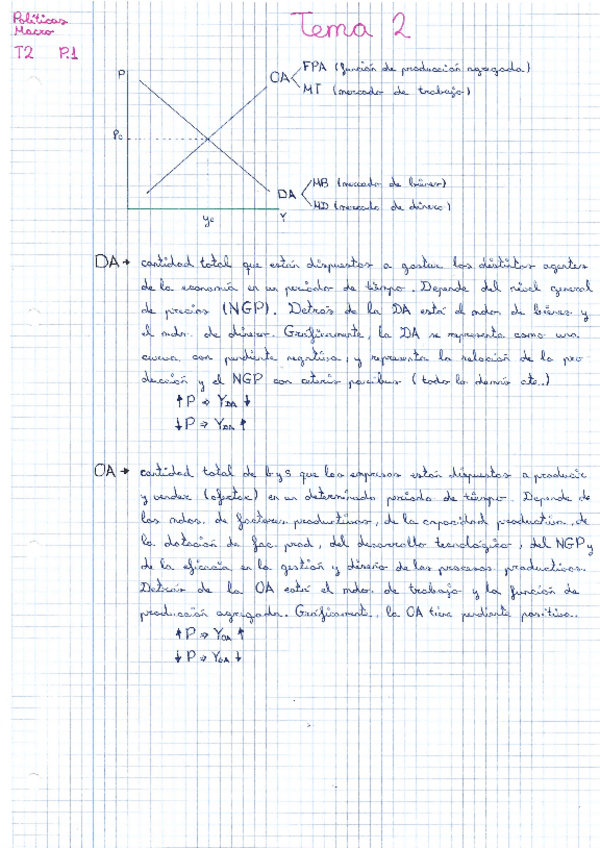 Políticas
Macro
T2 P.1
Tema 2
P
OA
FPA (función de producción agregada)
MT (mercado de trabajo)
P₀
DA
MB (mercado de bienes)
MD (mercado de dinero)
Y
DA → cantidad total que están dispuestos a gastar los distintos agentes
de la economía en un periodo de tiempo. Depende del nivel general
de precios (NGP). Detrás de la DA está el mdon de bienes y
el mdn. de dinero. Gráficamente, la DA se representa como una
curva con pendiente negativa, y representa la relación de la pro
ducción y el NGP con ceteris paribus (todo lo demás cte.)
↑P ⇒ Y_DA ↓
↓P ⇒ Y_DA ↑
OA → cantidad total de b y s que las empresas están dispuestos a producir
y vender (ofertar) en un determinado periodo de tiempo. Depende de
los mdos. de factores productivos, de la capacidad productiva, de
la dotación de fac. prod, del desarrollo tecnológico, del NGP y
de la eficacia en la gestión y diseño de los procesos productivos.
Detrás de la OA está el mdon. de trabajo y la función de
producción agregada. Gráficamente, la OA tiene pendiente positiva.
↑P ⇒ Y_OA ↑
↓P ⇒ Y_OA ↓